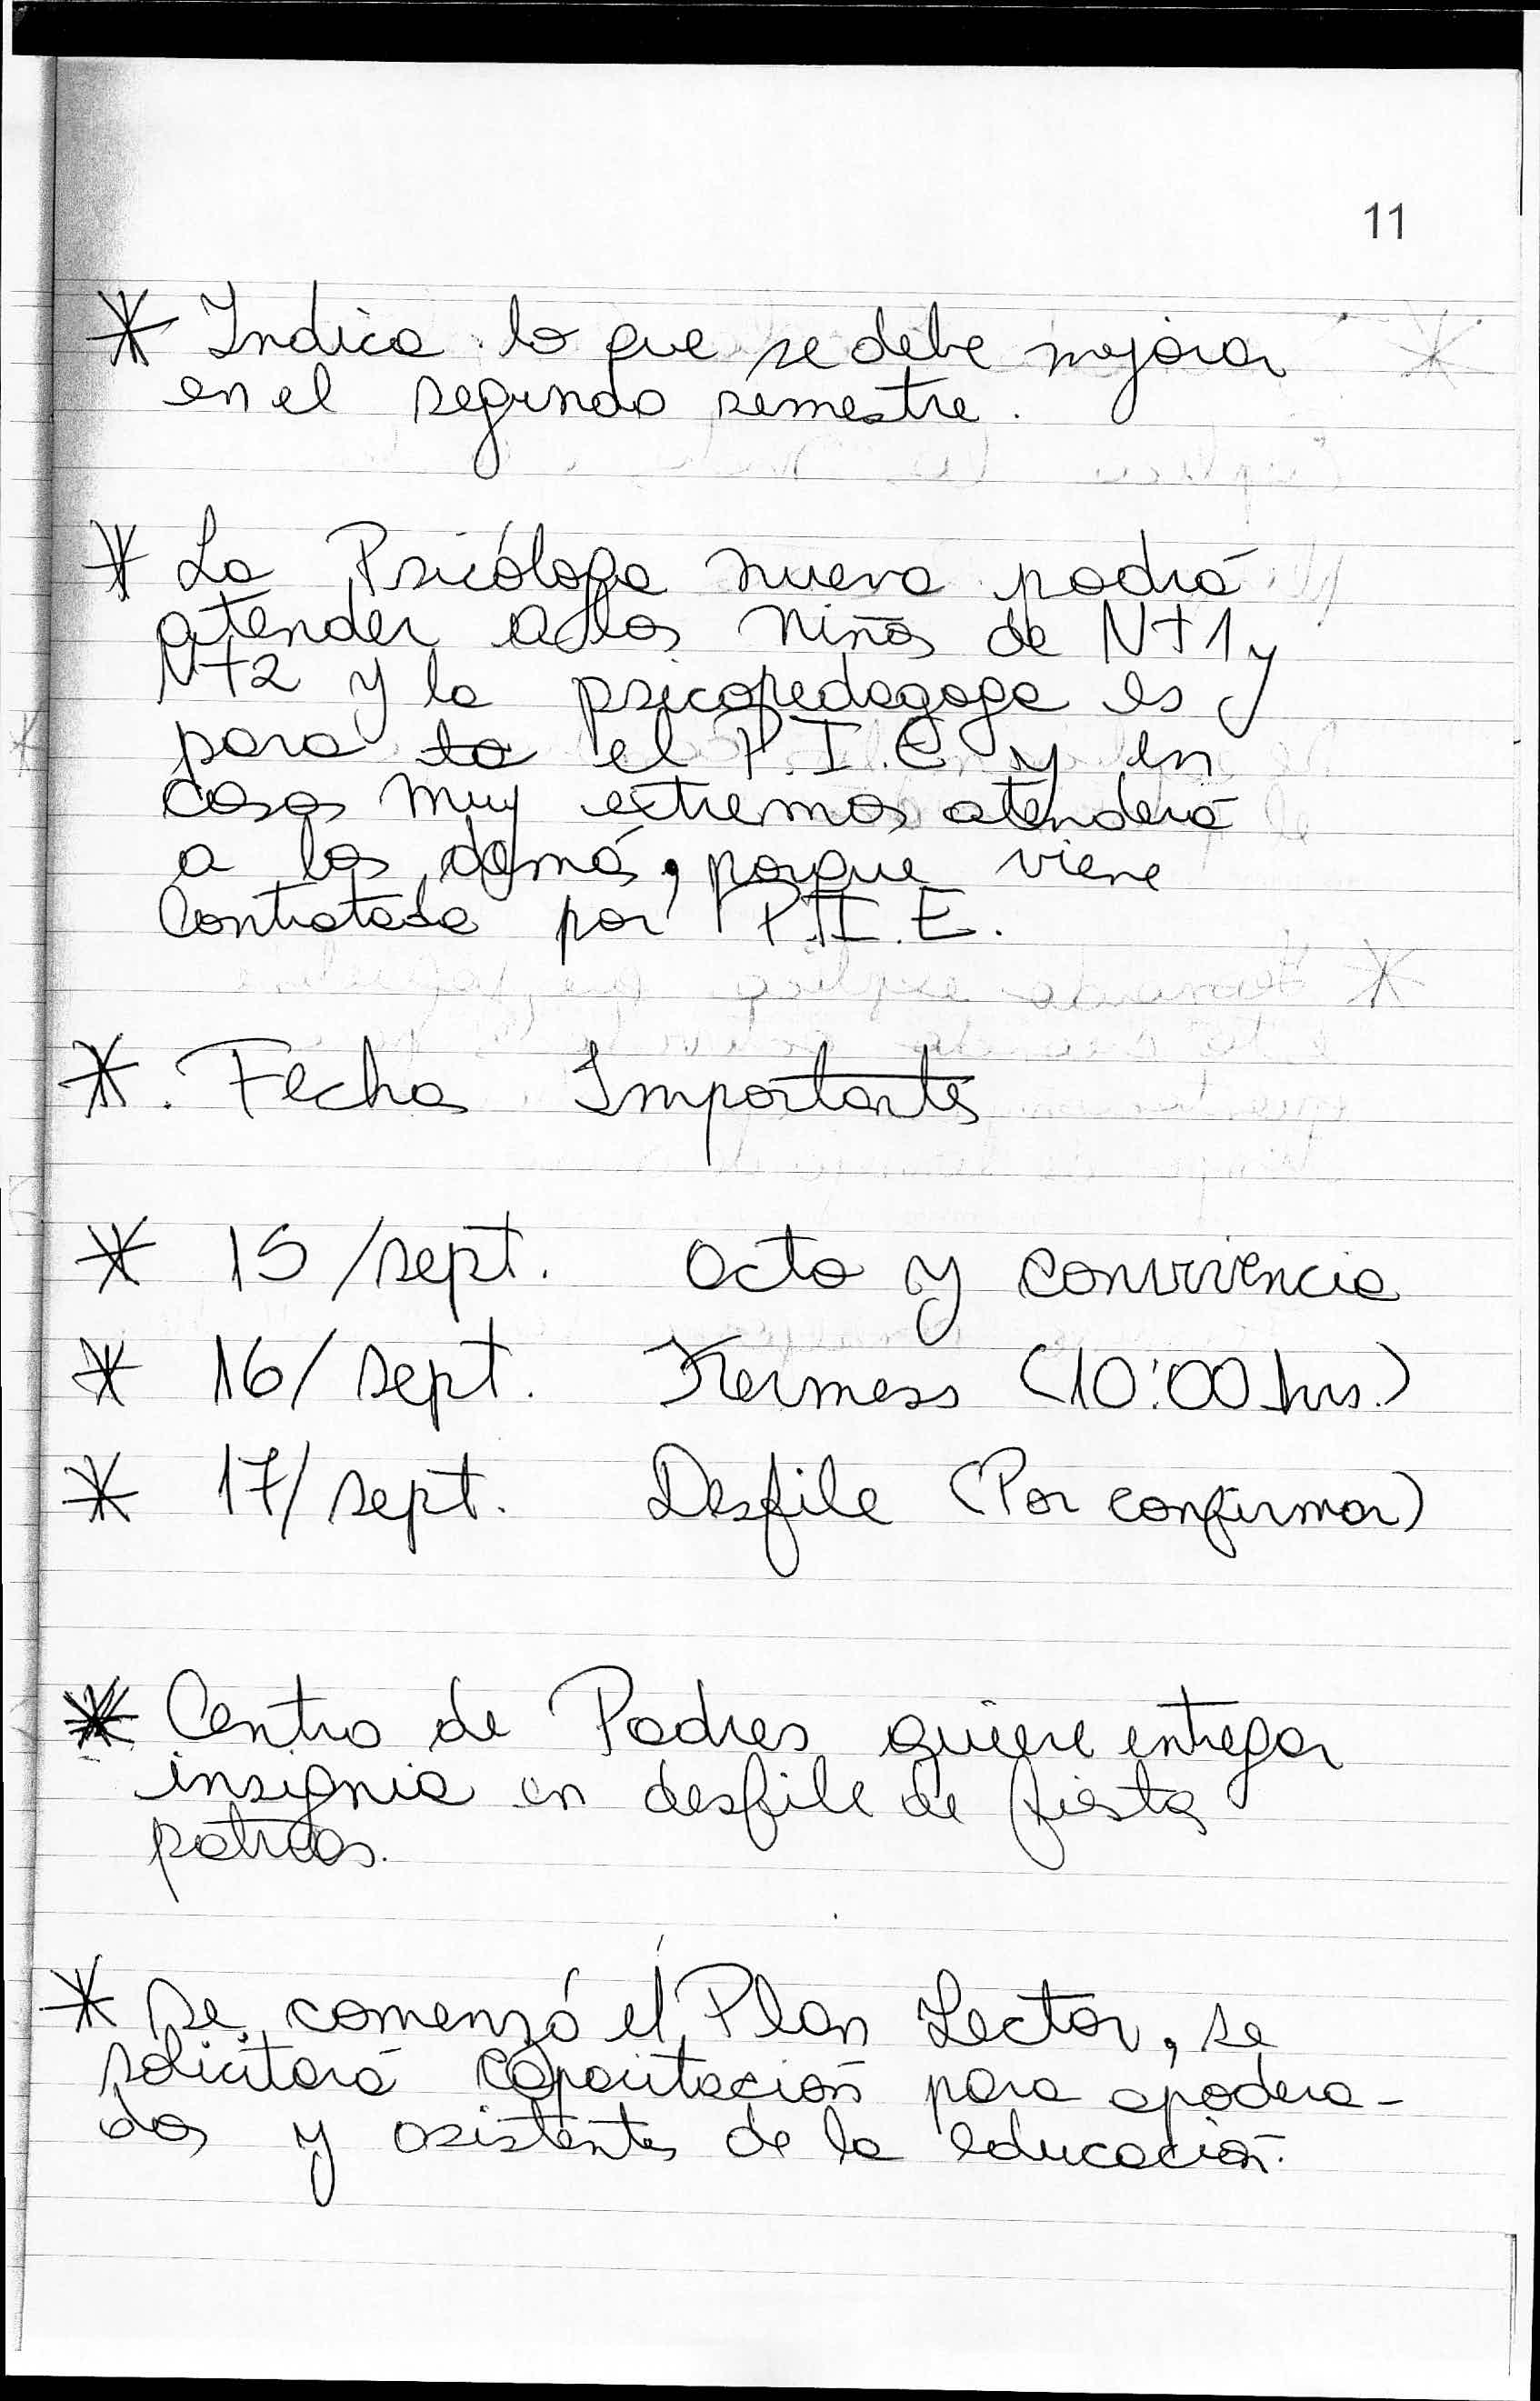 11
* Indica lo que se debe mejorar
en el segundo semestre.
* La Psicóloga nueva podrá
atender a los niños de NT1 y
NT2 y la psicopedagoga es
para to el P.I.E y en
casos muy extremos atenderá
a los demás, porque viene
contratada por P.I.E.
* Fechas Importantes
* 15/sept. acto y convivencia
* 16/sept. Kermess (10:00 hrs.)
* 17/sept. Desfile (Por confirmar)
* Centro de Padres quiere entregar
insignia en desfile de fiestas
patrias.
* Se comenzó el Plan Lector, se
solicitará capacitación para apodera-
dos y asistentes de la educación.